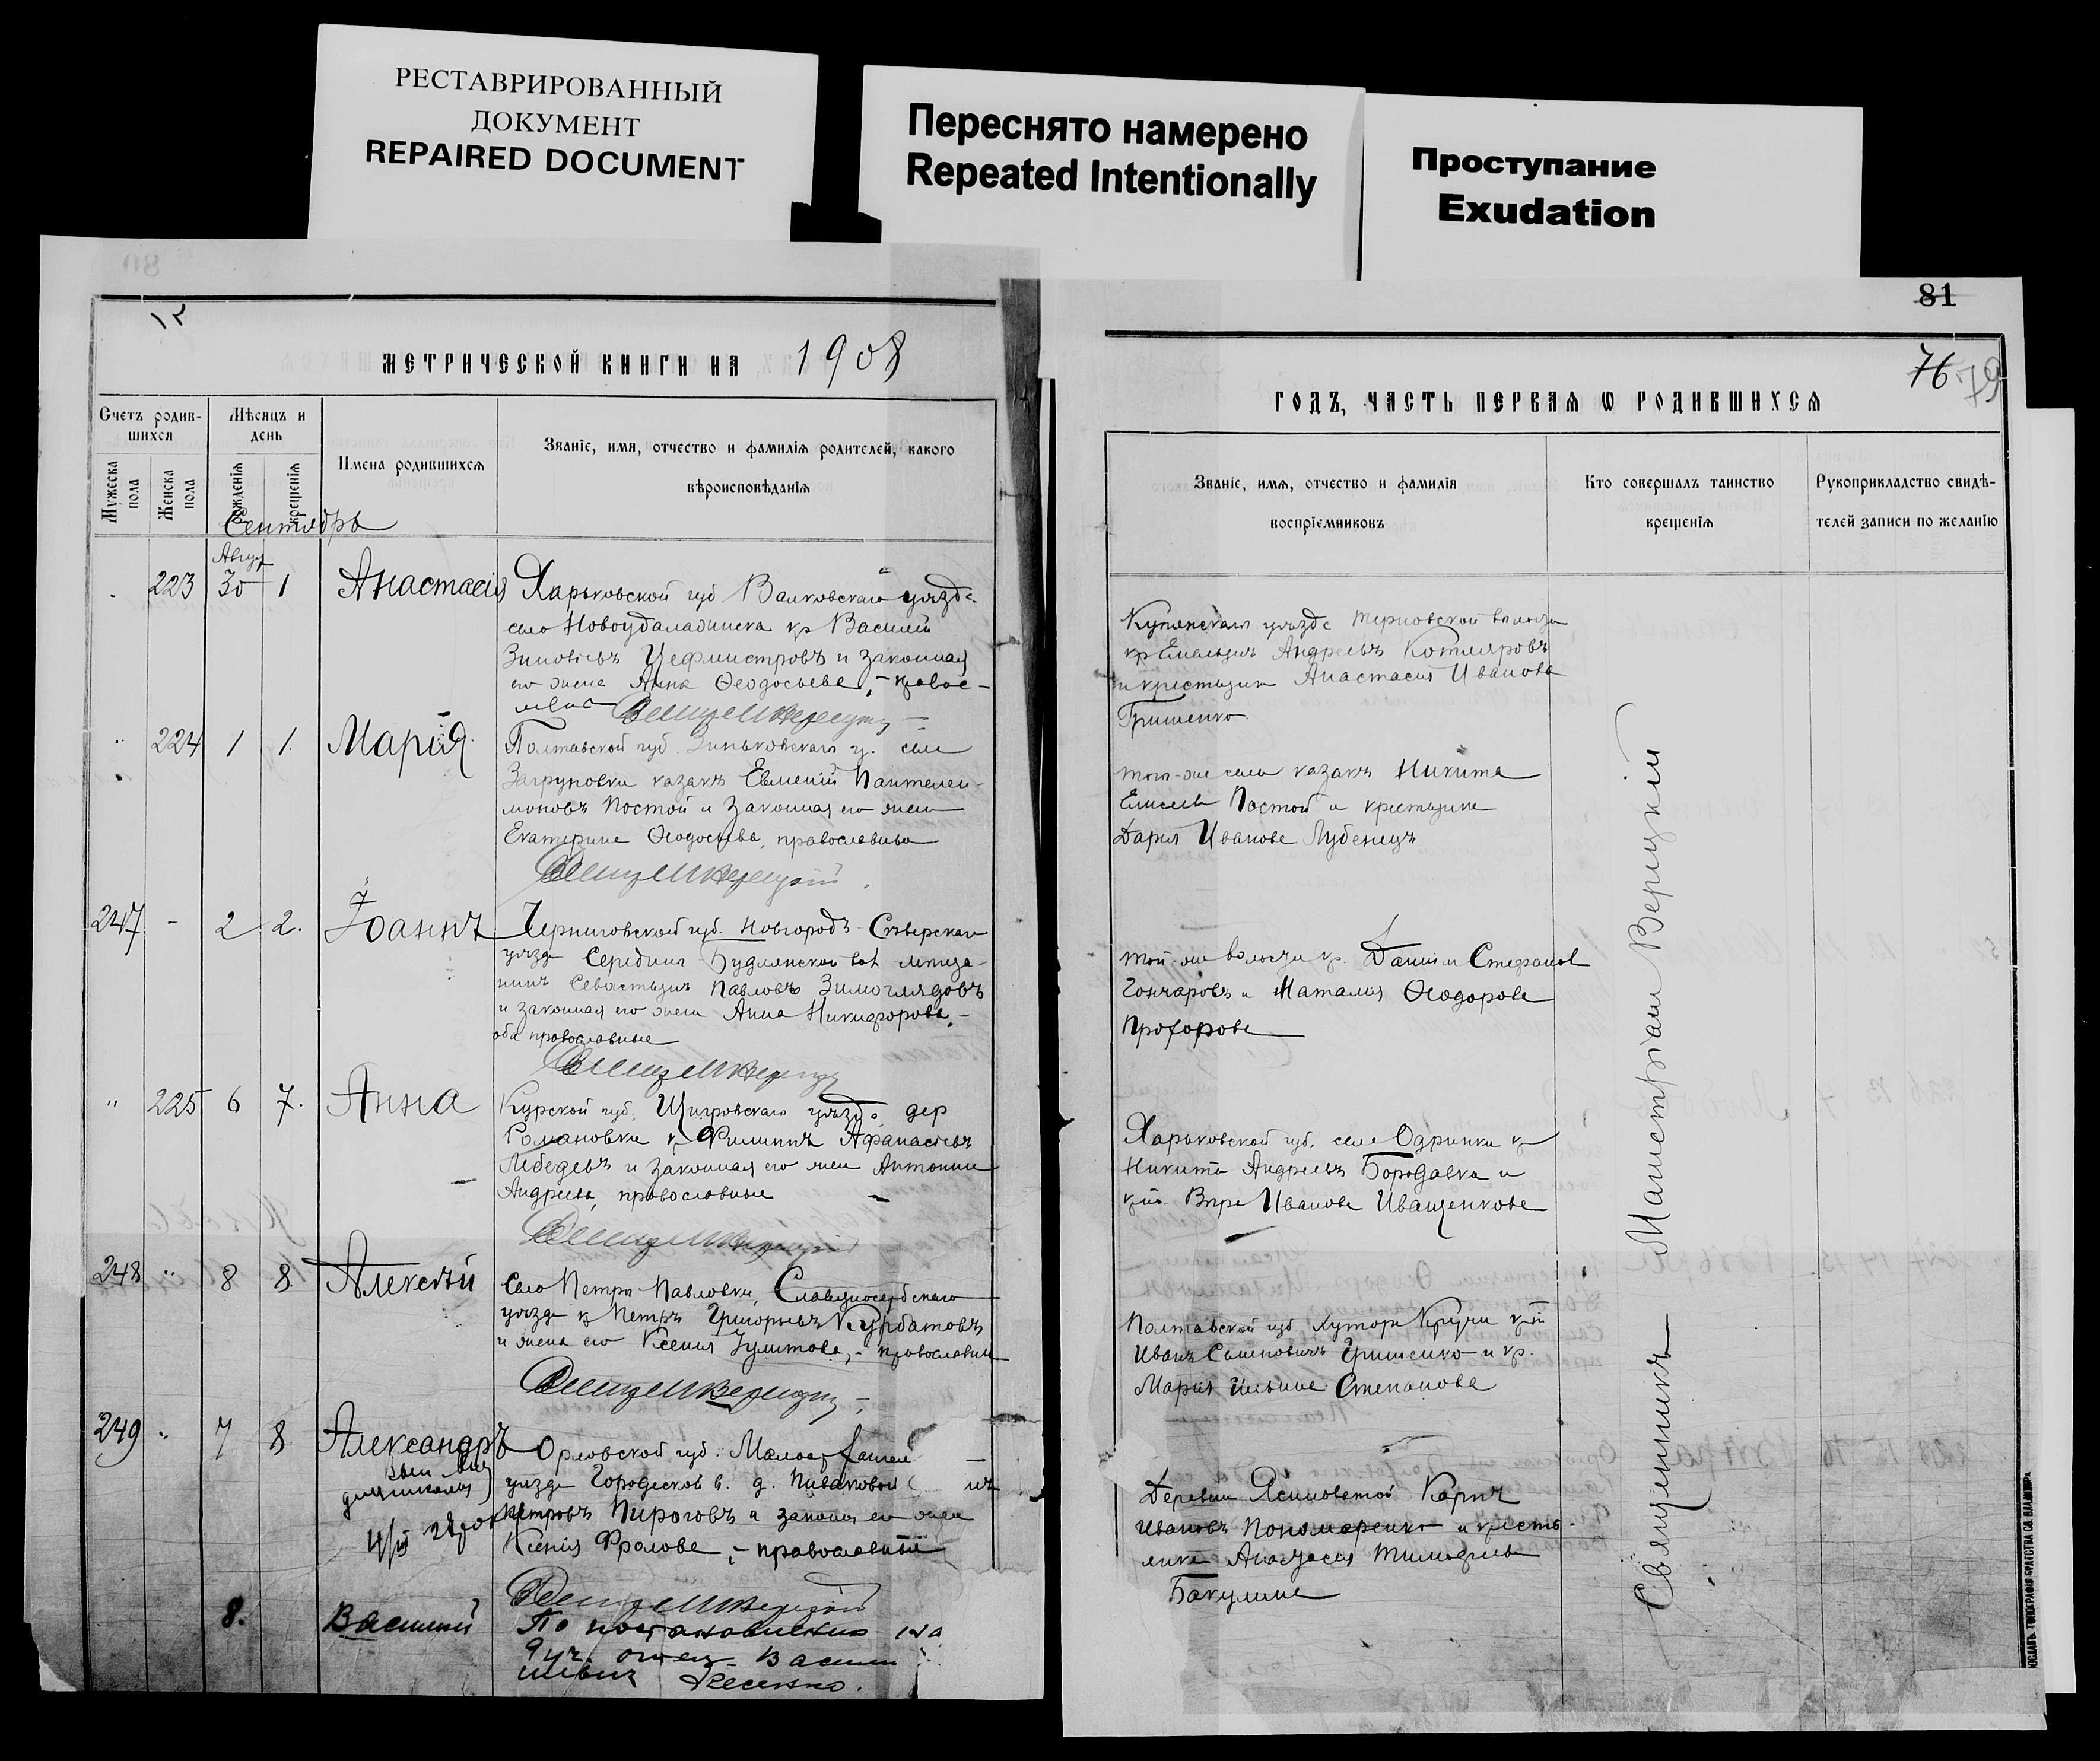 РЕСТАВРИРОВАННЫЙ
ДОКУМЕНТ
REPAIRED DOCUMENT
Переснято намерено
Repeated Intentionally
Проступание
Exudation
80
МЕТРИЧЕСКОЙ КНИГИ НА 1908
Счетъ родив-
шихся
Мѣсяцъ и
день
Мужеска
пола
Женска
пола
рожденія
крещенія
Имена родившихся
Званіе, имя, отчество и фамилія родителей, какого
вѣроисповѣданія
Сентябрь
Авгус
223 30 1 Анастасія Харьковской губ Валковскаго уезда
село кр Василій
Зиновіевъ Цефмистровъ и законная
его жена Анна Ѳеодосьева, - правос-
224 1 1. Марія Полтавской губ. Зиньковскаго у. села
Загруновки казакъ Евменій Пантелеи-
моновъ Постой и законная его жена
Екатерина Ѳеодосіева, православные
247 - 2 2. Іоаннъ Черниговской губ. Новгородъ-Сѣверскаго
уезда Середина-Будянской вол мѣща-
нинъ Севастьянъ Павловъ Зимоглядовъ
и законная его жена Анна Никифорова, -
оба православные
" 225 6 7. Анна Курской губ. Щигровскаго уезда, дер
Романовки кр Филиппъ Афанасіевъ
Лебедевъ и законная его жена Антонина
Андреева, православные
248 " 8 8 Алексѣй Село Петро-Павловки, Славяносербскаго
уезда кр Петръ Григорьевъ Курбатовъ
и жена его Ксенія Улитова, - православные
249 " 7 8 Александръ Орловской губ. Малоархангел
уезда Городеской в. д. Пиваковой
Петровъ Пироговъ и законная его жена
Ксенія Фролова, - православные
8. Василій По постановленію
отец Василій
81
76
79
ГОДЪ, ЧАСТЬ ПЕРВАЯ Ѡ РОДИВШИХСЯ
Званіе, имя, отчество и фамилія
воспріемниковъ
Кто совершалъ таинство
крещенія
Рукоприкладство свидѣ-
телей записи по желанію
Купянскаго уезда Терновской волости
кр Емельянъ Андреевъ Котляровъ
и крестьянка Анастасія Иванова
Гришенко.
того-же села казакъ Никита
Елисеевъ Постой и крестьянка
Дарья Иванова Лубенецъ
той-же волости кр. Даніилъ Стефановъ
Гончаровъ и Наталія Ѳеодорова
Прохорова
Харьковской губ. села Одринки кр
Никита Андреевъ Бородавка и
Вѣра Иванова Иващенкова
Полтавской губ хутора Кручи
Иванъ Семеновичъ Гришенко и кр.
Марія Степанова
Деревни Ясиноватой Карпъ
Ивановъ Пономаренко и кресть-
янка Анастасія Тимофеева
Бакулина
Священникъ Маистріан Верецкій
ТИПОГРАФІЯ БРАТСТВА СВ. ВЛАДИМІРА